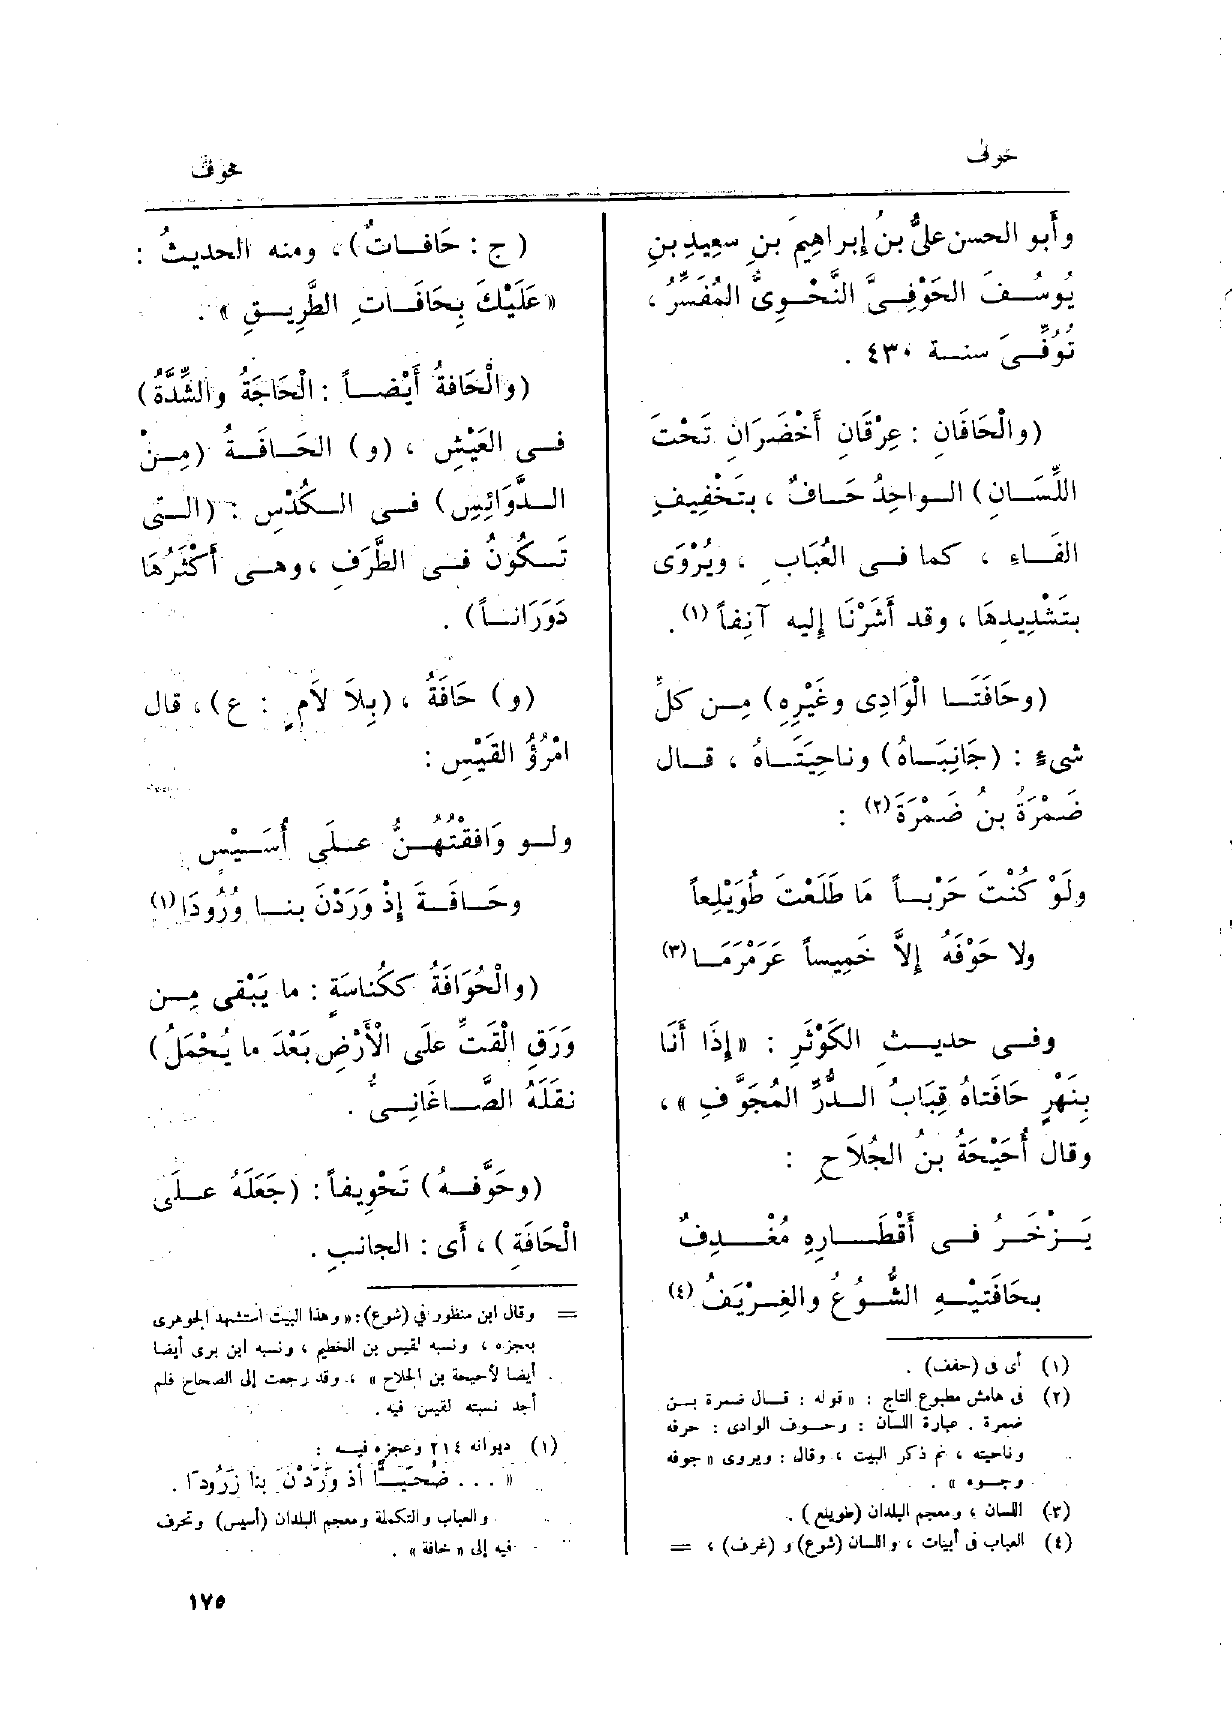 حوف
حوف
وأبو الحسن علىُّ بنُ إبراهيمَ بنِ سعِيدِ بنِ
يُوسُفَ الحَوْفِىُّ النَّحْوِىُّ المُفَسِّرُ ،
تُوُفِّىَ سنة ٤٣٠ .
(والْحَافَانِ : عِرْقَانِ أَخْضَرَانِ تَحْتَ
اللِّسَانِ) الواحِدُ حَافٌ ، بتَخْفِيفِ
الفَاءِ ، كما فى العُبَابِ ، ويُرْوَى
بتَشْدِيدِهَا ، وقد أَشَرْنَا إليه آنِفاً (١) .
(وحَافَتَا الْوَادِى وغَيْرِهِ) مِن كلِّ
شىءٍ : (جَانِبَاهُ) وناحِيَتَاهُ ، قال
ضَمْرَةُ بنُ ضَمْرَةَ (٢) :
ولَوْ كُنْتَ حَرْباً مَا طَلَعْتَ طُوَيْلِعاً
ولا حَوْفَهُ إلاَّ خَمِيساً عَرَمْرَمَا (٣)
وفى حديثِ الكَوْثَرِ : « إذَا أَنَا
بِنَهْرٍ حَافَتاهُ قِبَابُ الدُّرِّ المُجَوَّفِ » ،
وقال أُحَيْحَةُ بنُ الجُلاَحِ :
يَزْخَرُ فى أَقْطَارِهِ مُغْدِفٌ
بحَافَتَيْهِ الشُّوعُ والغِرْيَفُ (٤)
(١) أى فى (حفف) .
(٢) فى هامش مطبوع التاج : « قوله : قال ضمرة بن
ضمرة . عبارة اللسان : وحوف الوادى : حرفه
وناحيته ، ثم ذكر البيت ، وقال : ويروى « جوفه
وجوه » .
(٣) اللسان ، ومعجم البلدان (طويلع) .
(٤) العباب فى أبيات ، واللسان (شوع) و (غرف) ، =
( ج : حَافَاتٌ) ، ومنه الحديثُ :
« عَلَيْكَ بِحَافَاتِ الطَّرِيقِ » .
(والْحَافةُ أَيْضاً : الْحَاجَةُ والشِّدَّةُ)
فى العَيْشِ ، (و) الحَافَةُ (مِنْ
الدَّوَائِسِ) فى الكُدْسِ : (الَّتِى
تَكُونُ فى الطَّرَفِ ، وهى أَكْثَرُهَا
دَوَرَاناً) .
(و) حَافَةُ ، (بِلاَ لاَمٍ : ع) ، قال
امْرُؤُ القَيْسِ :
ولو وَافَقْتُهُنَّ على أُسَيْسٍ
وحَافَةَ إذْ وَرَدْنَ بنا وُرُودَا (١)
(والْحُوَافَةُ ككُنَاسَةٍ : ما يَبْقَى مِن
وَرَقِ الْقَتِّ علَى الْأَرْضِ بَعْدَ ما يُحْمَلُ)
نقَلَهُ الصَّاغَانِىُّ .
(وحَوَّفهُ) تَحْوِيفاً : (جَعَلَهُ علَى
الْحَافَةِ) ، أَى : الجانبِ .
= وقال ابن منظور في (شوع) : « وهذا البيت استشهد الجوهرى
بعجزه ، ونسبه لقيس بن الخطيم ، ونسبه ابن برى أيضا
أيضا لأحيحة بن الجلاح » ، وقد رجعت إلى الصحاح فلم
أجد نسبته لقيس فيه .
(١) ديوانه ٢١٤ وعجزه فيه :
« ... ضُحَيًّا أذ وَرَدْنَ بنا زَرُودا .
والعباب والتكملة ومعجم البلدان (أسيس) وتحرف
فيه إلى « خافة » .
١٧٥